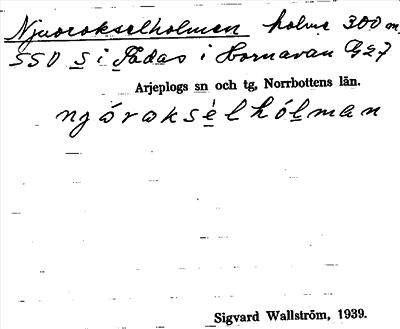 Njuorokselholmen holme 300 m
SSO S i Tådas i Hornavan G27
Arjeplogs sn och tg, Norrbottens län.
njårøksèlhólman
Sigvard Wallström, 1939.